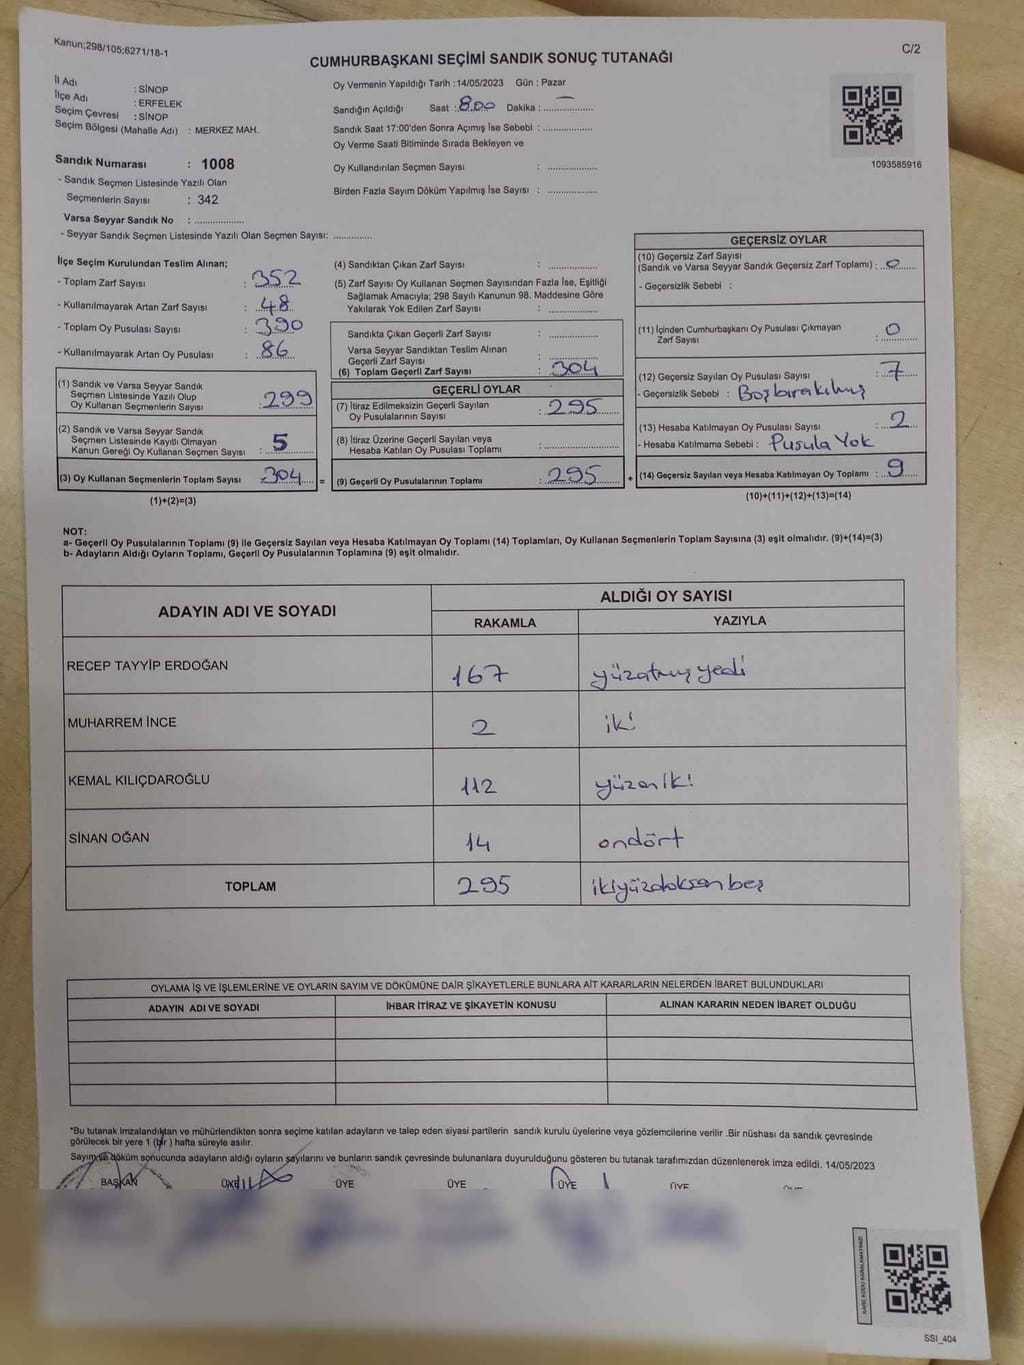 Kanun;298/105;6271/18-1
C/2
CUMHURBAŞKANI SEÇİMİ SANDIK SONUÇ TUTANAĞI
İl Adı : SİNOP
İlçe Adı : ERFELEK
Seçim Çevresi : SİNOP
Seçim Bölgesi (Mahalle Adı) : MERKEZ MAH.
Sandık Numarası : 1008
- Sandık Seçmen Listesinde Yazılı Olan
Seçmenlerin Sayısı : 342
Varsa Seyyar Sandık No : ..................
- Seyyar Sandık Seçmen Listesinde Yazılı Olan Seçmen Sayısı: ..............
Oy Vermenin Yapıldığı Tarih :14/05/2023 Gün : Pazar
Sandığın Açıldığı Saat :8.00 Dakika : ..................
Sandık Saat 17:00'den Sonra Açımış İse Sebebi : ..................
Oy Verme Saati Bitiminde Sırada Bekleyen ve
Oy Kullandırılan Seçmen Sayısı : ..................
Birden Fazla Sayım Döküm Yapılmış İse Sayısı : ..................
1093585916
İlçe Seçim Kurulundan Teslim Alınan;
- Toplam Zarf Sayısı : 352
- Kullanılmayarak Artan Zarf Sayısı : 48
- Toplam Oy Pusulası Sayısı : 390
- Kullanılmayarak Artan Oy Pusulası : 86
(1) Sandık ve Varsa Seyyar Sandık
Seçmen Listesinde Yazılı Olup
Oy Kullanan Seçmenlerin Sayısı : 299
(2) Sandık ve Varsa Seyyar Sandık
Seçmen Listesinde Kayıtlı Olmayan
Kanun Gereği Oy Kullanan Seçmen Sayısı : 5
(3) Oy Kullanan Seçmenlerin Toplam Sayısı 304 =
(1)+(2)=(3)
(4) Sandıktan Çıkan Zarf Sayısı : ..................
(5) Zarf Sayısı Oy Kullanan Seçmen Sayısından Fazla İse, Eşitliği
Sağlamak Amacıyla; 298 Sayılı Kanunun 98. Maddesine Göre
Yakılarak Yok Edilen Zarf Sayısı : ..................
Sandıkta Çıkan Geçerli Zarf Sayısı : ..................
Varsa Seyyar Sandıktan Teslim Alınan
Geçerli Zarf Sayısı : ..................
(6) Toplam Geçerli Zarf Sayısı : 304
GEÇERLİ OYLAR
(7) İtiraz Edilmeksizin Geçerli Sayılan
Oy Pusulalarının Sayısı : 295
(8) İtiraz Üzerine Geçerli Sayılan veya
Hesaba Katılan Oy Pusulası Toplamı : ..................
(9) Geçerli Oy Pusulalarının Toplamı : 295 +
GEÇERSİZ OYLAR
(10) Geçersiz Zarf Sayısı
(Sandık ve Varsa Seyyar Sandık Geçersiz Zarf Toplamı) : 0
- Geçersizlik Sebebi :
(11) İçinden Cumhurbaşkanı Oy Pusulası Çıkmayan
Zarf Sayısı : 0
(12) Geçersiz Sayılan Oy Pusulası Sayısı : 7
- Geçersizlik Sebebi : Boş bırakılmış
(13) Hesaba Katılmayan Oy Pusulası Sayısı : 2
- Hesaba Katılmama Sebebi : Pusula Yok
(14) Geçersiz Sayılan veya Hesaba Katılmayan Oy Toplamı : 9
(10)+(11)+(12)+(13)=(14)
NOT:
a- Geçerli Oy Pusulalarının Toplamı (9) ile Geçersiz Sayılan veya Hesaba Katılmayan Oy Toplamı (14) Toplamları, Oy Kullanan Seçmenlerin Toplam Sayısına (3) eşit olmalıdır. (9)+(14)=(3)
b- Adayların Aldığı Oyların Toplamı, Geçerli Oy Pusulalarının Toplamına (9) eşit olmalıdır.
ADAYIN ADI VE SOYADI ALDIĞI OY SAYISI
RAKAMLA YAZIYLA
RECEP TAYYİP ERDOĞAN 167 yüzatmış yedi
MUHARREM İNCE 2 iki
KEMAL KILIÇDAROĞLU 112 yüzoniki
SİNAN OĞAN 14 ondört
TOPLAM 295 ikiyüzdoksan beş
OYLAMA İŞ VE İŞLEMLERİNE VE OYLARIN SAYIM VE DÖKÜMÜNE DAİR ŞİKAYETLERLE BUNLARA AİT KARARLARIN NELERDEN İBARET BULUNDUKLARI
ADAYIN ADI VE SOYADI İHBAR İTİRAZ VE ŞİKAYETİN KONUSU ALINAN KARARIN NEDEN İBARET OLDUĞU
*Bu tutanak imzalandıktan ve mühürlendikten sonra seçime katılan adayların ve talep eden siyasi partilerin sandık kurulu üyelerine veya gözlemcilerine verilir .Bir nüshası da sandık çevresinde
görülecek bir yere 1 (bir ) hafta süreyle asılır.
Sayım ve döküm sonucunda adayların aldığı oyların sayılarını ve bunların sandık çevresinde bulunanlara duyurulduğunu gösteren bu tutanak tarafımızdan düzenlenerek imza edildi. 14/05/2023
BAŞKAN ÜYE ÜYE ÜYE ÜYE ÜYE
KARE KODU KARALAMAYINIZ!
SSI_404